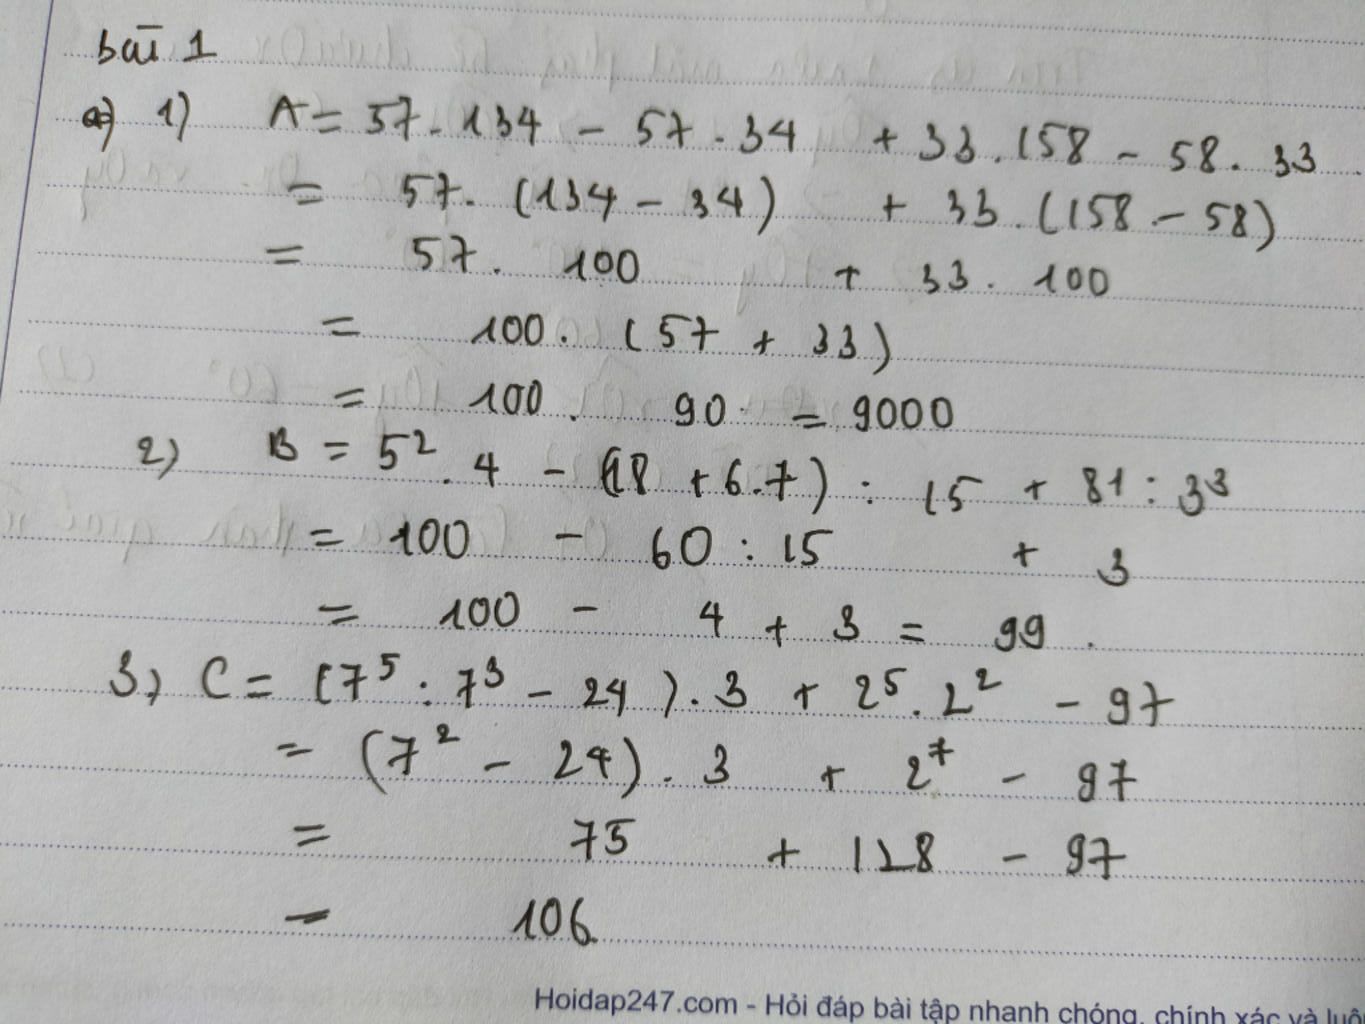 bài 1
a) 1) A = 57 . 134 - 57 . 34 + 33 . 158 - 58 . 33
= 57 . (134 - 34) + 33 . (158 - 58)
= 57 . 100 + 33 . 100
= 100 . (57 + 33)
= 100 . 90 = 9000
2) B = 5² . 4 - (18 + 6.7) : 15 + 81 : 3³
= 100 - 60 : 15 + 3
= 100 - 4 + 3 = 99 .
3) C = (7⁵ : 7³ - 24) . 3 + 2⁵ . 2² - 97
= (7² - 24) . 3 + 2⁷ - 97
= 75 + 128 - 97
= 106
Hoidap247.com - Hỏi đáp bài tập nhanh chóng, chính xác và luô